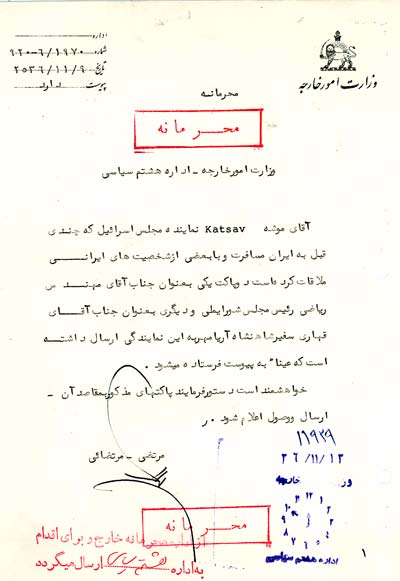 وزارت امور خارجه
اداره
شماره ۹۲۰-۶/۱۹۷۰
تاریخ ۲۵۳۶/۱۱/۹
پیوست دارد
محرمانه
محرمانه
وزارت امورخارجه - اداره هشتم سیاسی
آقای موشه Katsav نماینده مجلس اسرائیل که چندی
قبل به ایران مسافرت و با بعضی از شخصیت های ایرانی
ملاقات کرده است دو پاکت یکی بعنوان جناب آقای مهندس
ریاضی رئیس مجلس شورایملی و دیگری بعنوان جناب آقای
قهاری سفیر شاهنشاه آریامهر به این نمایندگی ارسال داشته
است که عینا" به پیوست فرستاده میشود .
خواهشمند است دستور فرمایند پاکتهای مذکور بمقاصد آن -
ارسال و وصول اعلام شود .
مرتضی - مرتضائی
۱۱۹۳۹
۳۶/۱۱/۱۲
محرمانه
خارج و برای اقدام
به اداره هشتم سیاسی ارسال میگردد
اداره هشتم سیاسی
۱